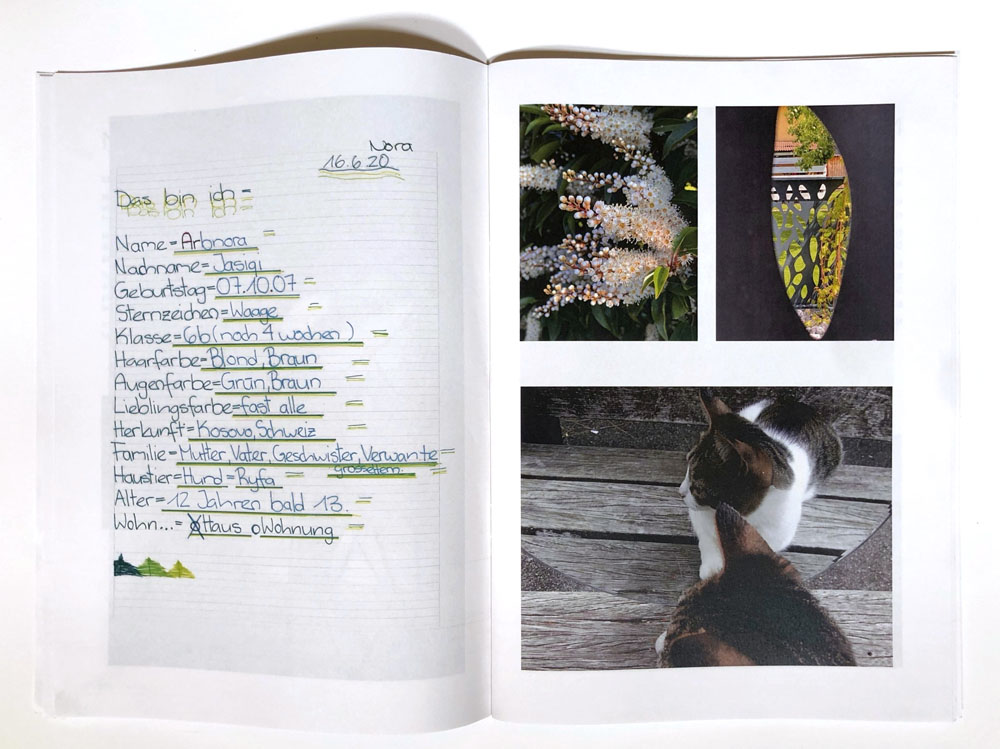 Nora
16.6.20
Das bin ich =
Name = Arbnora =
Nachname = Jasiqi
Geburtstag = 07.10.07 =
Sternzeichen = Waage =
Klasse = 6b (noch 4 wochen) =
Haarfarbe = Blond, Braun =
Augenfarbe = Grün, Braun =
Lieblingsfarbe = fast alle =
Herkunft = Kosovo, Schweiz =
Familie = Mutter, Vater, Geschwister, Verwante =
grosseltern. =
Haustier = Hund = Ryfa =
Alter = 12 Jahren bald 13. =
Wohn... = Haus o Wohnung =